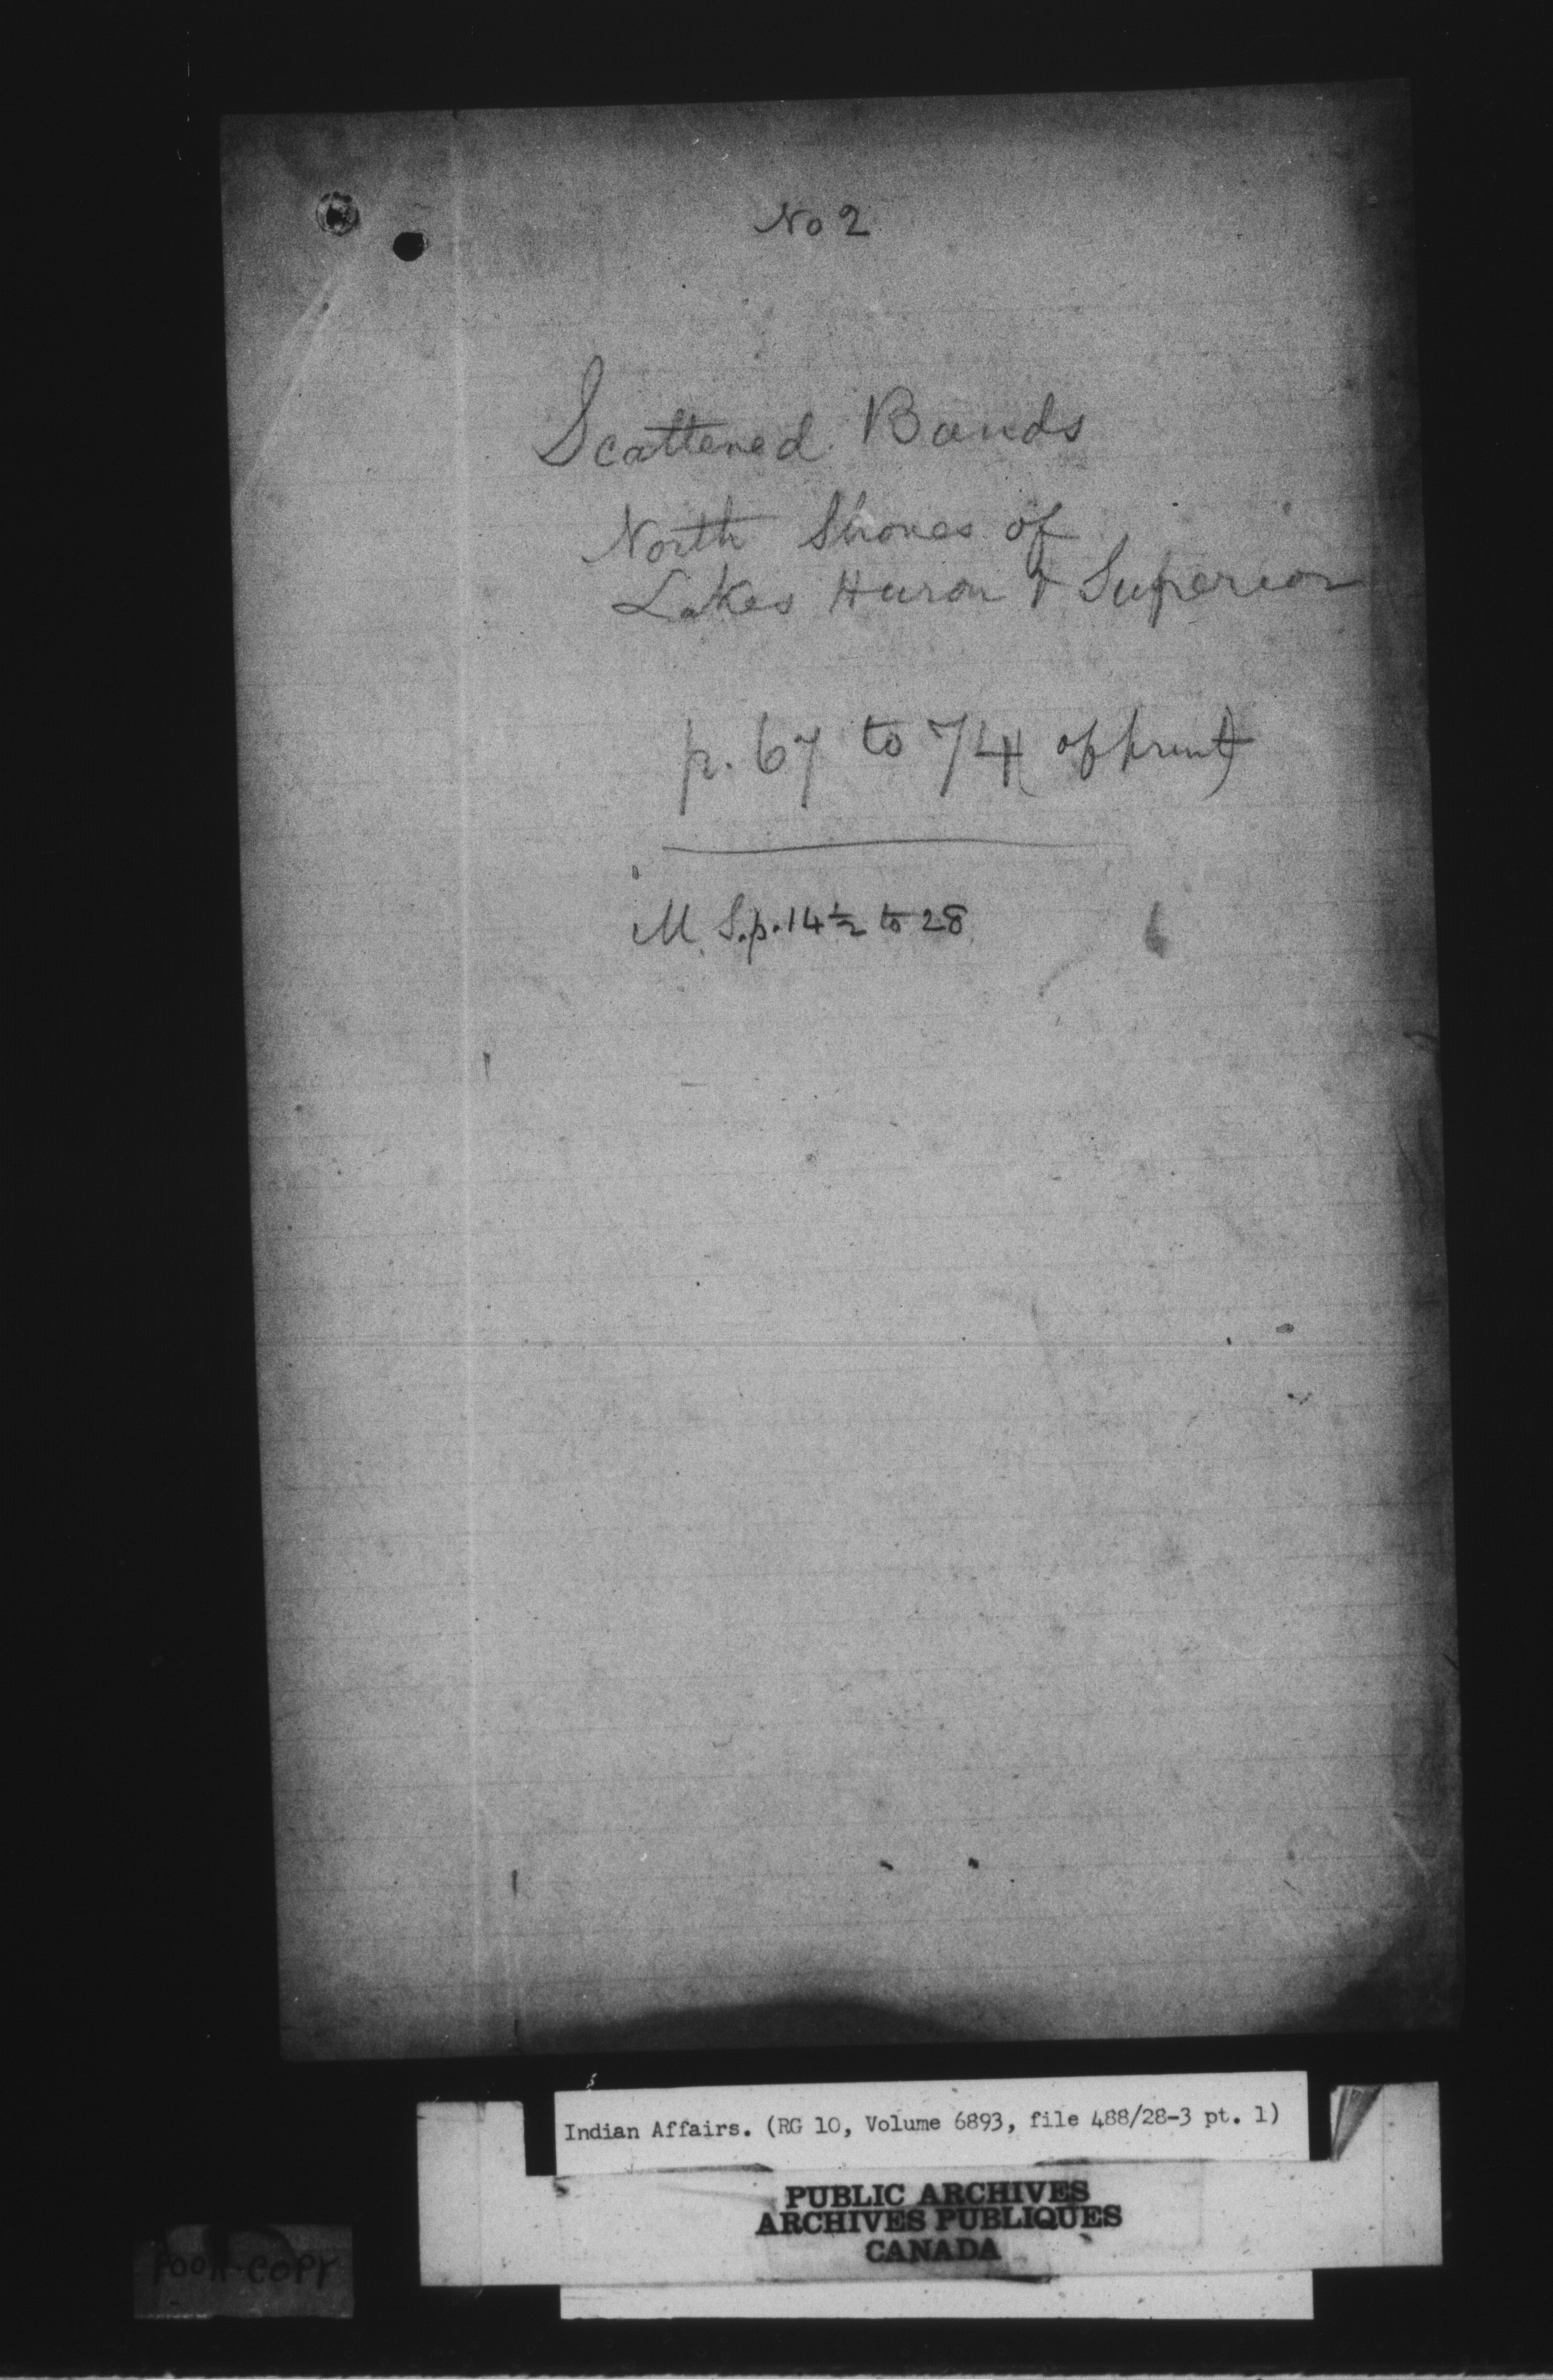 No 2
Scattered Bands
North Shores of
Lakes Huron & Superior
p. 67 to 74 (of print)
M.S.p. 14 ½ to 28
Indian Affairs. (RG 10, Volume 6893, file 488/28-3 pt. 1)
PUBLIC ARCHIVES
ARCHIVES PUBLIQUES
CANADA
POOR COPY